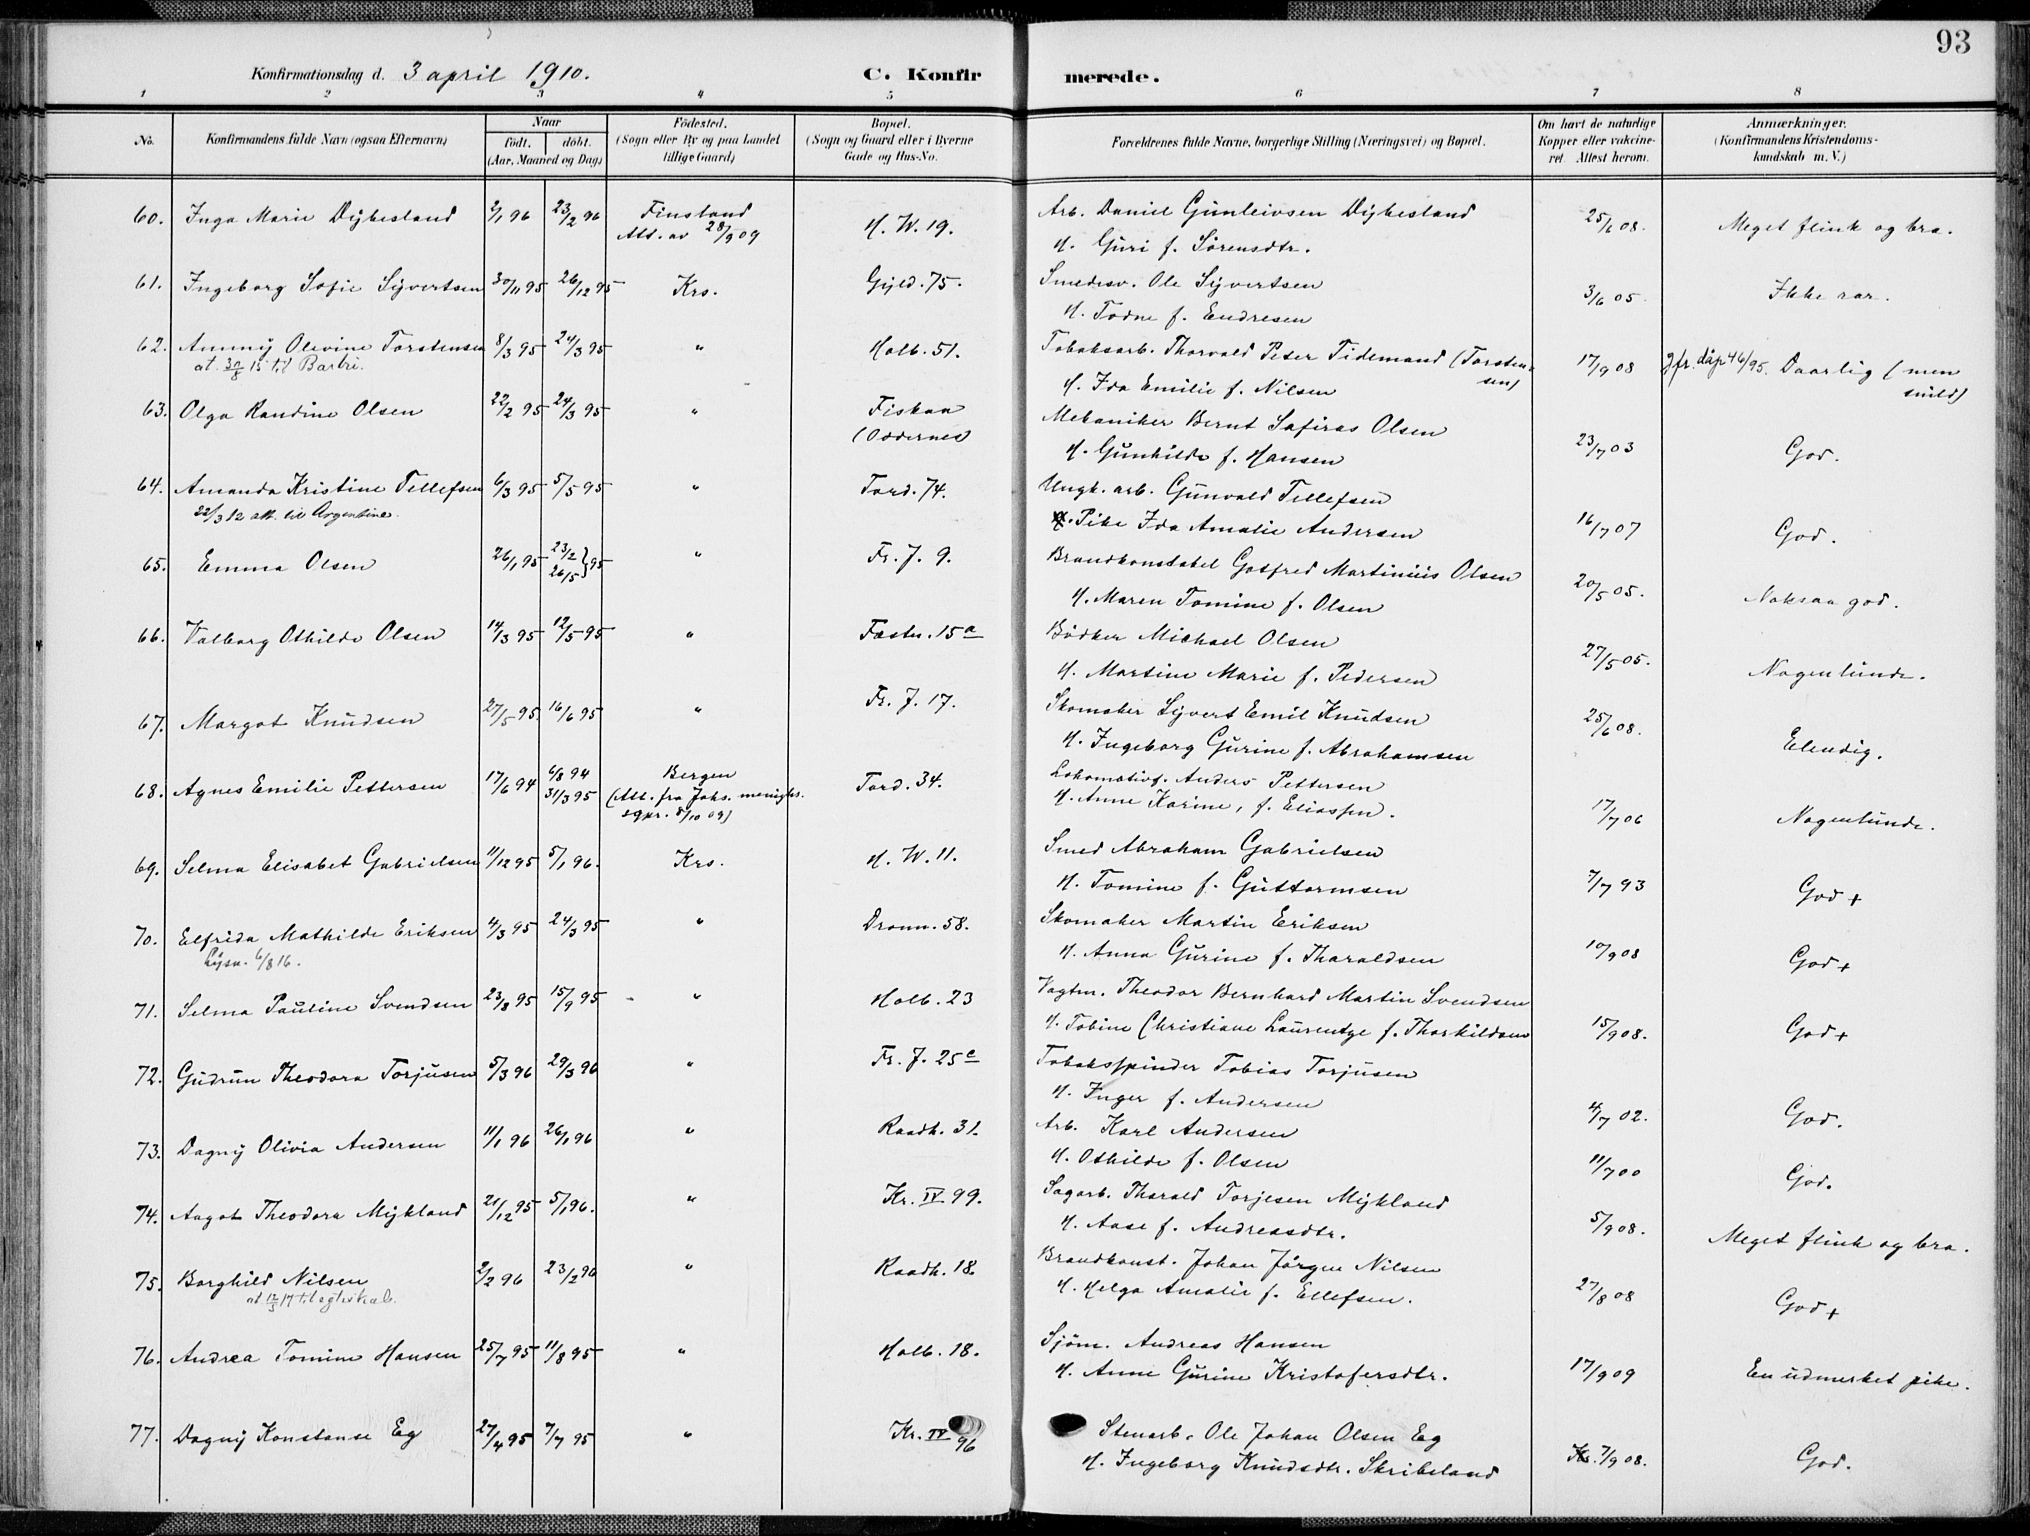 93
Konfirmationsdag d. 3 april 1910. C. Konfirmerede.
1 2 3 4 5 6 7 8
No. Konfirmandens fulde Navn (ogsaa Efternavn) Naar födt. döbt. (Aar, Maaned og Dag) Födested. (Sogn eller By og paa Landet tillige Gaard) Bopæl. (Sogn og Gaard eller i Byerne Gade og Hus-No. Forældrenes fulde Navne, borgerlige Stilling (Næringsvei) og Bopæl. Om havt de naturlige Kopper eller vakcineret. Attest herom. Anmærkninger. (Konfirmandens Kristendomskundskab m. V.)
60. Inga Marie Dybesland 2/1 96 23/2 96 Finsland H. W. 19. Arb. Daniel Gunleivsen Dybesland 25/6 08. Meget flink og bra.
Att. av 28/9 09 H. Guri f. Sørensdtr.
61. Ingeborg Sofie Syvertsen 30/11 95 26/12 95 Krs. Gyld. 75. Smedesv. Ole Syvertsen 3/6 05. Ikke rar.
H. Todne f. Endresen
62. Ammy Olevine Torstensen 8/3 95 24/3 95 " Holb. 51. Tobaksarb. Thorvald Peter Tidemand (Torstensen) 17/9 08 jfr. dåp 46/95. Daarlig (men snild)
at. 30/8 15 til H. Ida Emilie f. Nilsen
63. Olga Randine Olsen 22/2 95 24/3 95 " Fiskaa (Oddernes) Mekaniker Bernt Safiras Olsen 23/7 03 God.
H. Gunhilde f. Hansen
64. Amanda Kristine Tellefsen 6/3 95 5/5 95 " Tord. 74. Ungk. arb. Gunvald Tellefsen 16/7 07 God.
22/3 12 att. til Argentine. Pike Ida Amalie Andersen
65. Emma Olsen 26/1 95 23/2 26/5 } 95 " Fr. J. 9. Brandkonstabel Gotfred Martinius Olsen 20/5 05. Noksaa god.
H. Maren Tomine f. Olsen
66. Valborg Othilde Olsen 14/3 95 12/5 95 " Fæstn. 15a Bödker Michael Olsen 27/5 05. Nogenlunde.
H. Martine Marie f. Pedersen
67. Margot Knudsen 27/5 95 16/6 95 " Fr. J. 17. Skomaker Syvert Emil Knudsen 25/6 08. Elendig.
H. Ingeborg Gurine f. Abrahamsen
68. Agnes Emilie Pettersen 17/6 94 6/8 94 31/3 95 Bergen Tord. 34. Lokomotivf. Anders Pettersen 17/7 06 Nogenlunde.
(Att. fra Johs. menighs. sgpr. 5/10 09) H. Anne Karine, f. Eliassen.
69. Selma Elisabet Gabrielsen 11/12 95 5/1 96. Krs. H. W. 11. Smed Abraham Gabrielsen 7/7 93 God +
H. Tomine f. Guttormsen
70. Elfrida Mathilde Eriksen 4/3 95 24/3 95 " Dronn. 58. Skomaker Martin Eriksen 10/9 08 God +
Lysn. 6/8 16. H. Anna Gurine f. Tharaldsen
71. Selma Pauline Svendsen 23/8 95 15/9 95 " Holb. 23 Vagtm. Theodor Bernhard Martin Svendsen 15/9 08. God +
H. Tobine Christiane Laurentze f. Thorkildsen
72. Gudrun Theodora Torjusen 5/3 96 29/3 96 " Fr. J. 25c Tobaksspinder Tobias Torjusen 4/7 02. God.
H. Inger f. Andersen
73. Dagny Olivia Andersen 11/1 96 26/1 96 " Raadh. 31. Arb. Karl Andersen 11/7 00 God.
H. Othilde f. Olsen
74. Aagot Theodora Mykland 21/12 95 5/1 96. " Kr. IV 99. Sagarb. Tharald Torjesen Mykland 5/9 08. Meget flink og bra.
H. Aase f. Andreasdtr.
75. Borghild Nilsen 2/2 96 23/2 96 " Raadh. 18. Brandkonst. Johan Jörgen Nilsen 27/8 08 God +
at 12/3 17 til egteskab. H. Helga Amalie f. Ellefsen.
76. Andrea Tomine Hansen 25/7 95 11/8 95 " Holb. 18. Sjöm. Andreas Hansen 17/9 09 En udmerket pike.
H. Anne Gurine Kristofersdtr.
77. Dagny Konstanse Eg 27/4 95 7/7 95 " Kr. IV 96 Stenarb. Ole Johan Olsen Eg 7/9 08. God.
H. Ingeborg Knudsdtr. Skribeland